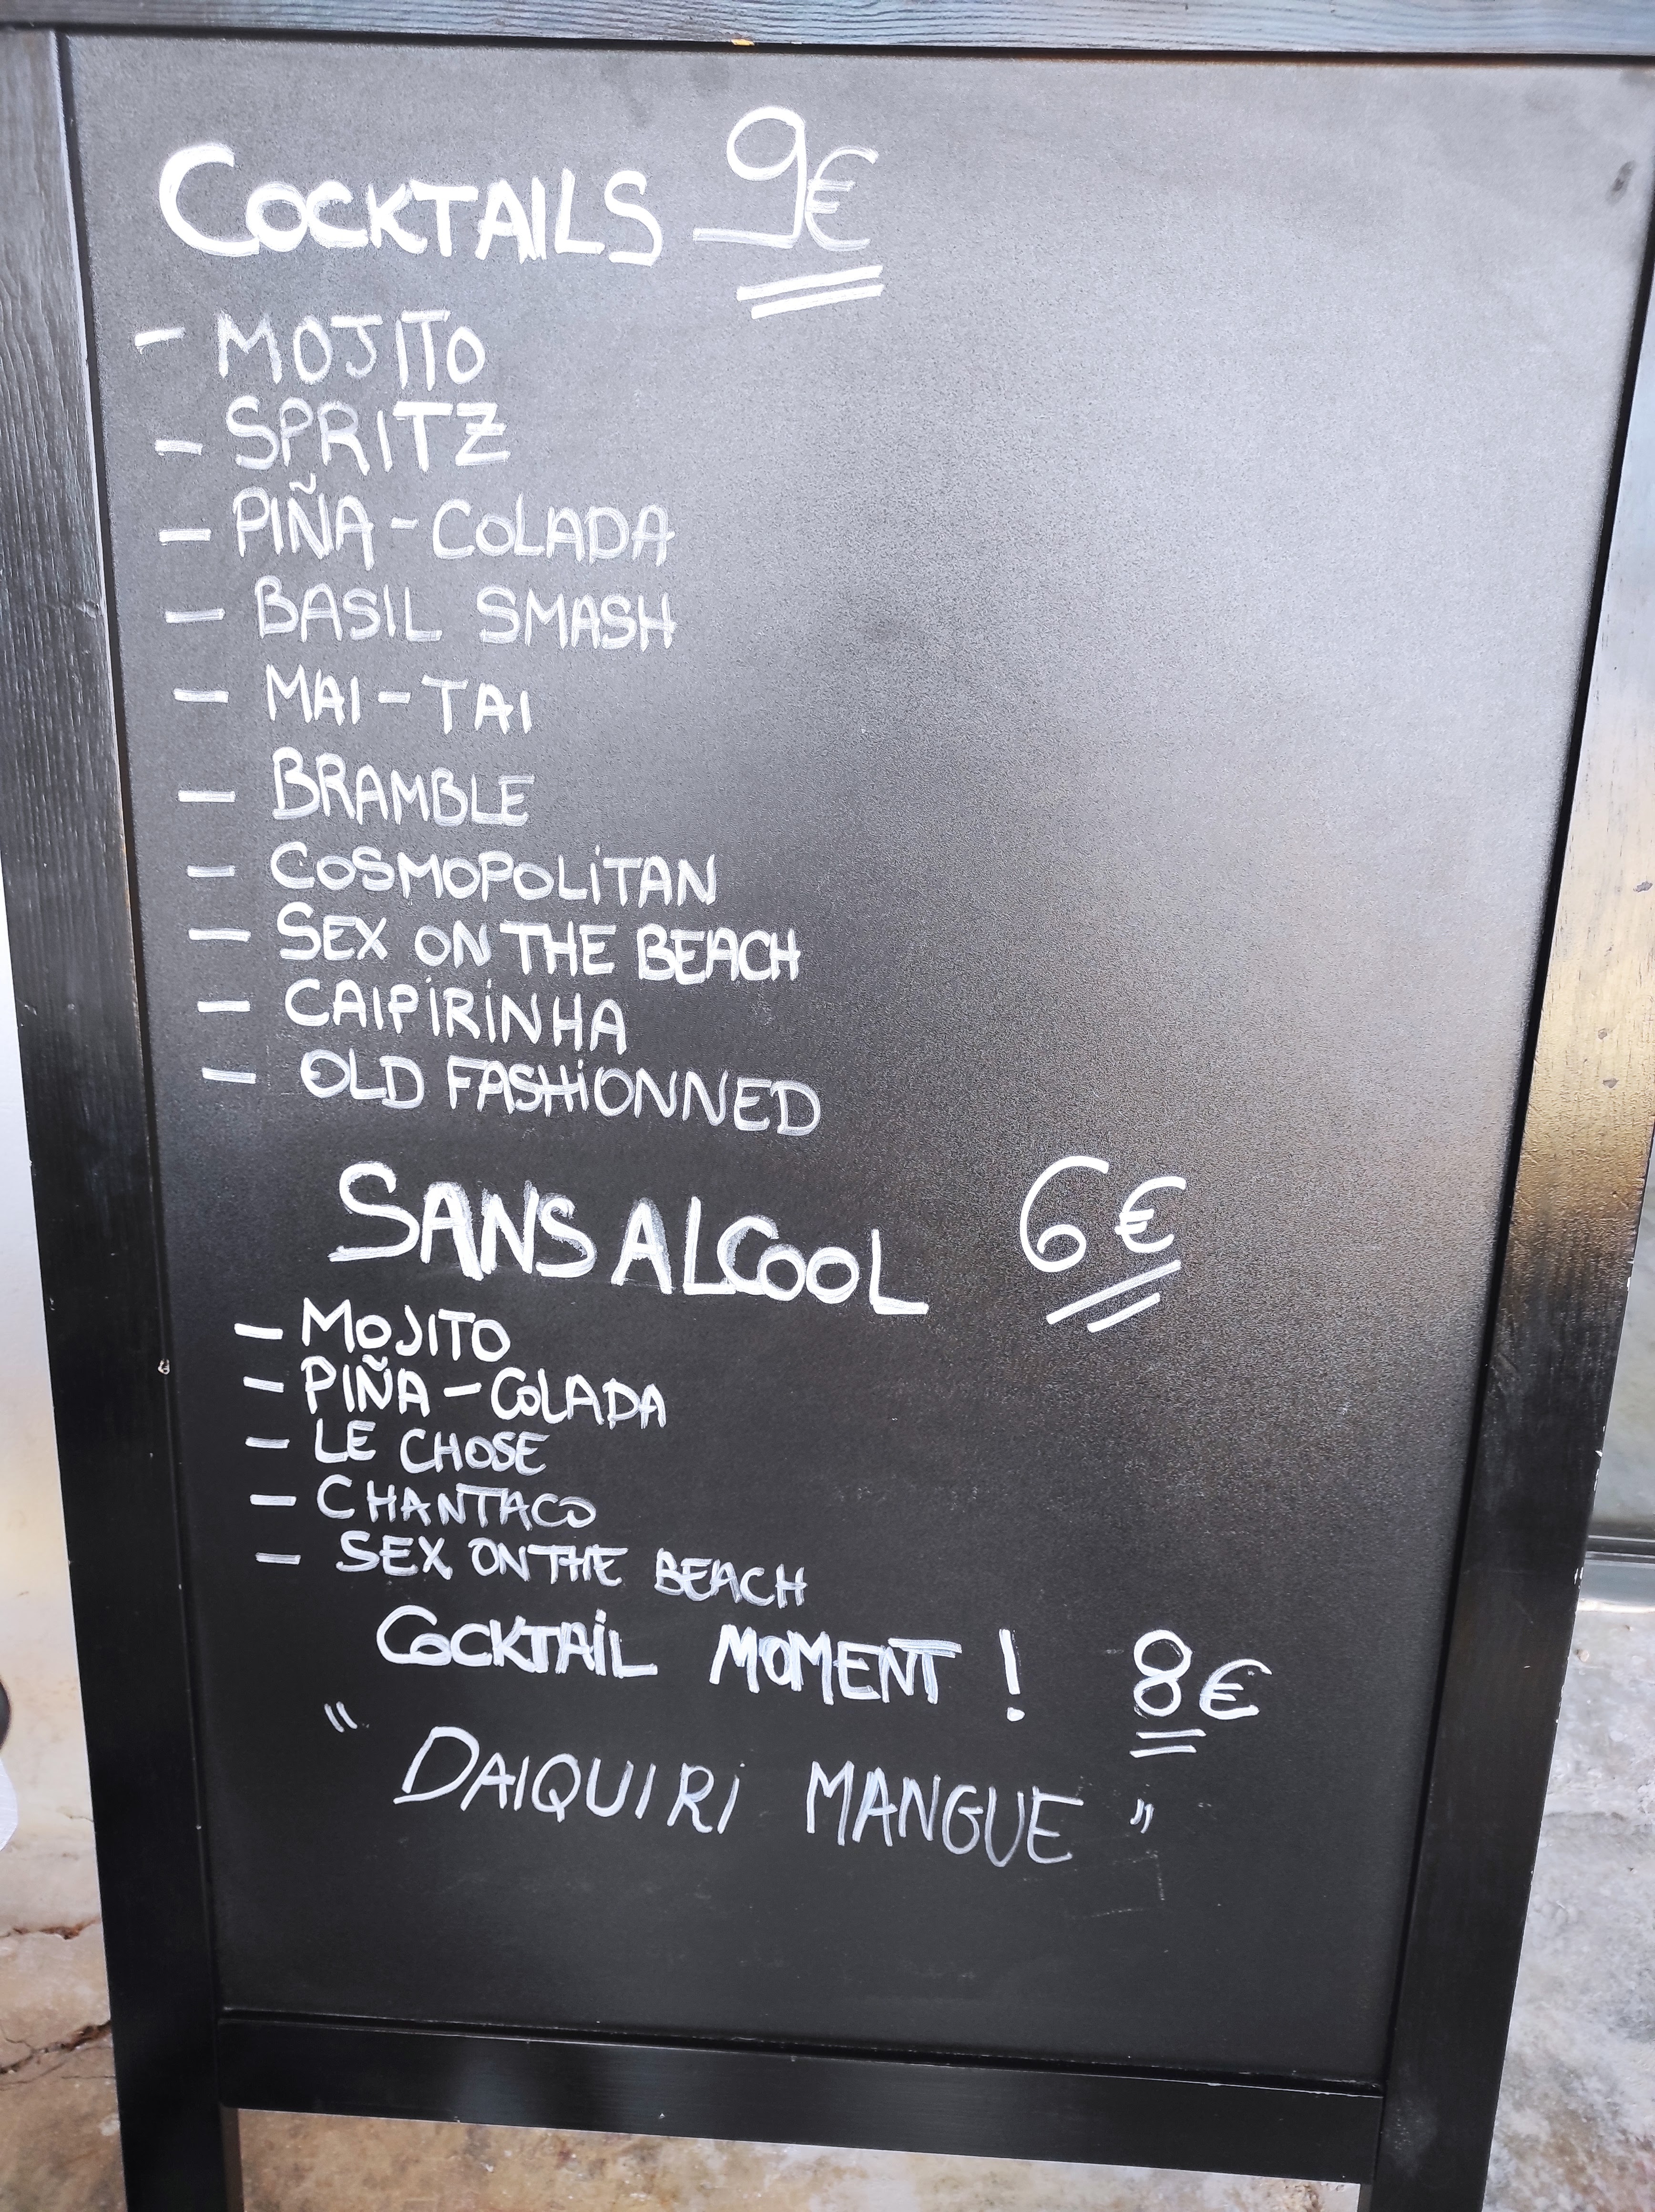 COCKTAILS 9€
- MOJITO
- SPRITZ
- PIÑA-COLADA
- BASIL SMASH
- MAI-TAI
- BRAMBLE
- COSMOPOLITAN
- SEX ON THE BEACH
- CAIPIRINHA
- OLD FASHIONNED
SANS ALCOOL 6€
- MOJITO
- PIÑA-COLADA
- LE CHOSE
- CHANTACO
- SEX ON THE BEACH
COCKTAIL MOMENT ! 8€
" DAIQUIRI MANGUE "